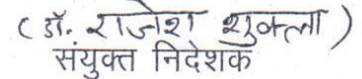 (डॉ. राजेश शुक्ला)
संयुक्त निदेशक